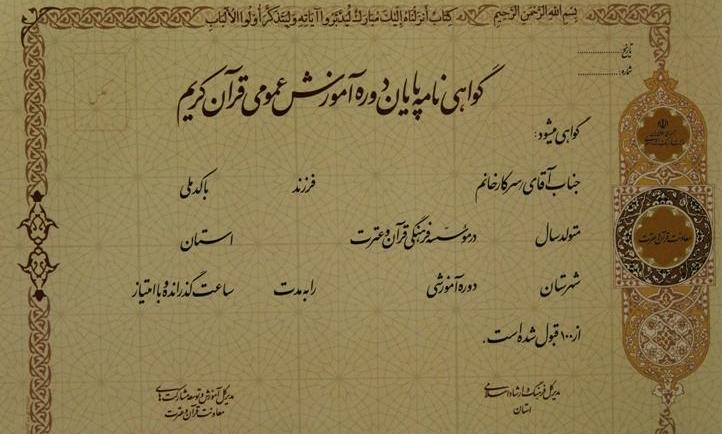 بسم الله الرحمن الرحیم
کتاب أنزلناه إلیک مبارک لیدبروا آیاته ولیتذکر أولوا الألباب
تاریخ:
شماره:
عکس
گواهی نامه پایان دوره آموزش عمومی قرآن کریم
گواهی میشود:
جناب آقای/سرکار خانم فرزند با کد ملی
متولد سال در موسسه فرهنگی قرآن و عترت استان
شهرستان دوره آموزشی را به مدت ساعت گذرانده و با امتیاز
از ۱۰۰ قبول شده است.
معاونت قرآن و عترت
مدیر کل فرهنگ و ارشاد اسلامی
استان
مدیر کل آموزش و توسعه مشارکت های
معاونت قرآن و عترت